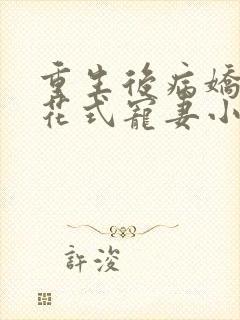 重生後病嬌
花式寵妻小
許浚